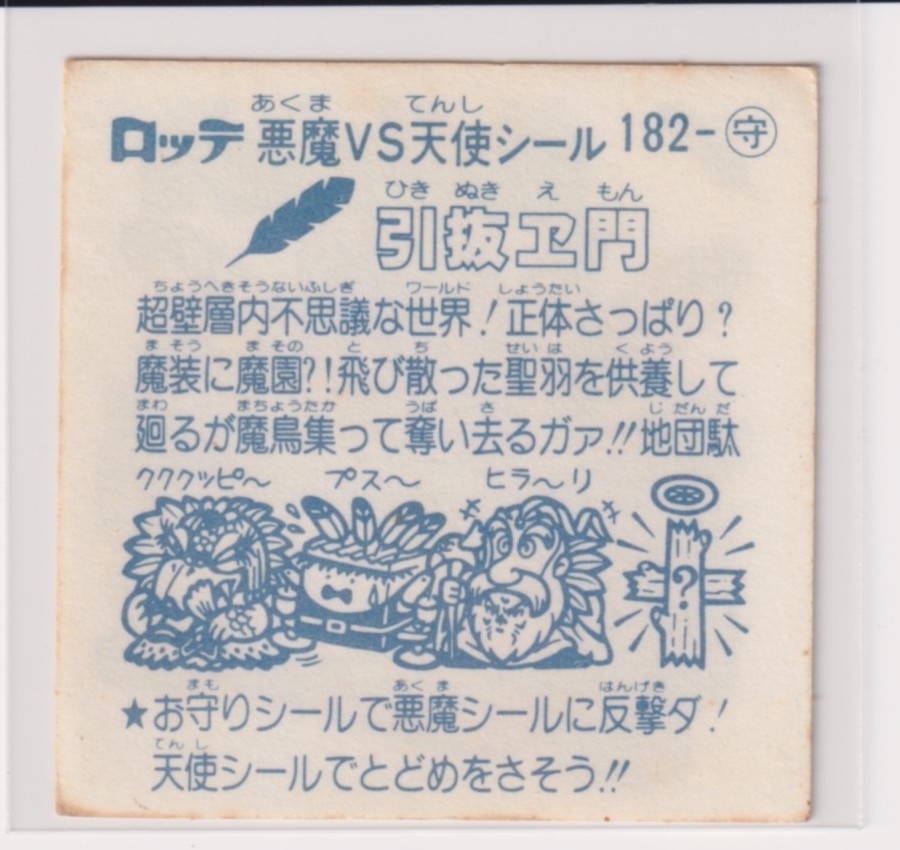 あくま てんし
ロッテ 悪魔VS天使シール 182-守
ひき ぬき え もん
引抜ヱ門
ちょうへきそうないふしぎ ワールド しょうたい
超壁層内不思議な世界！正体さっぱり？
まそう まその と ち せいは くよう
魔装に魔園?!飛び散った聖羽を供養して
まわ まちょうたか うば さ じだんだ
廻るが魔鳥集って奪い去るガァ!!地団駄
クククッピ〜 プス〜 ヒラ〜リ
?
まも あくま はんげき
★お守りシールで悪魔シールに反撃ダ！
てんし
天使シールでとどめをさそう!!